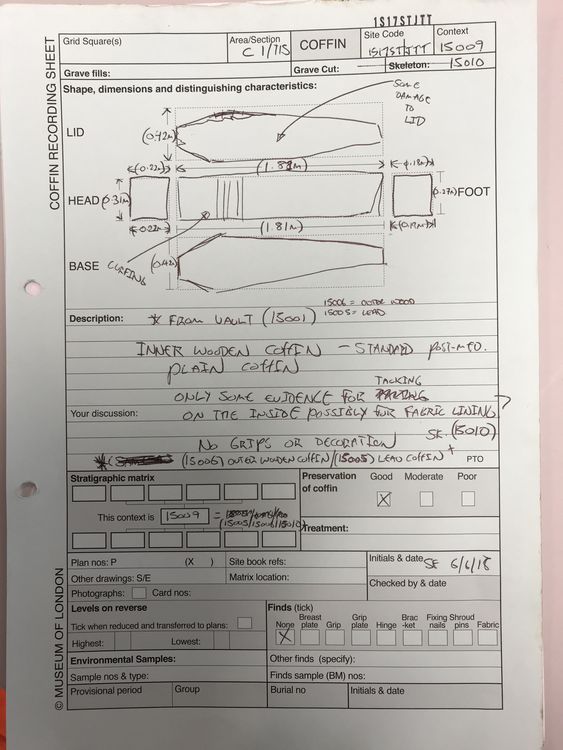 1S17STJTT
COFFIN RECORDING SHEET
Grid Square(s)
Area/Section
C 1/715
COFFIN
Site Code
1S17STJTT
Context
15009
Grave fills:
Grave Cut:
Skeleton: 15010
Shape, dimensions and distinguishing characteristics:
SOME DAMAGE TO LID
LID
(0.42m)
(0.22m)
(1.81m)
(0.18m)
HEAD
(0.31m)
(0.27m)
FOOT
(0.22m)
(1.81m)
BASE
CURFINGS
(0.42m)
15006 = OUTER WOOD
15005 = LEAD
Description: * FROM VAULT (15001)
INNER WOODEN COFFIN - STANDARD POST-MED.
PLAIN COFFIN
TACKING
ONLY SOME EVIDENCE FOR
Your discussion: ON THE INSIDE POSSIBLY FOR FABRIC LINING
NO GRIPS OR DECORATION SK. (15010)
(15006) OUTER WOODEN COFFIN/(15005) LEAD COFFIN + PTO
Stratigraphic matrix
Preservation of coffin
Good Moderate Poor
X
This context is 15009 =
(15005/15006/15010)
Treatment:
Plan nos: P (X ) Site book refs:
Initials & date SE 6/6/18
Other drawings: S/E Matrix location:
Checked by & date
Photographs: Card nos:
Levels on reverse
Tick when reduced and transferred to plans:
Highest: Lowest:
Finds (tick)
None Breast plate Grip Grip plate Hinge Brac -ket Fixing nails Shroud pins Fabric
X
Environmental Samples:
Other finds (specify):
Sample nos & type:
Finds sample (BM) nos:
Provisional period Group Burial no Initials & date
© MUSEUM OF LONDON